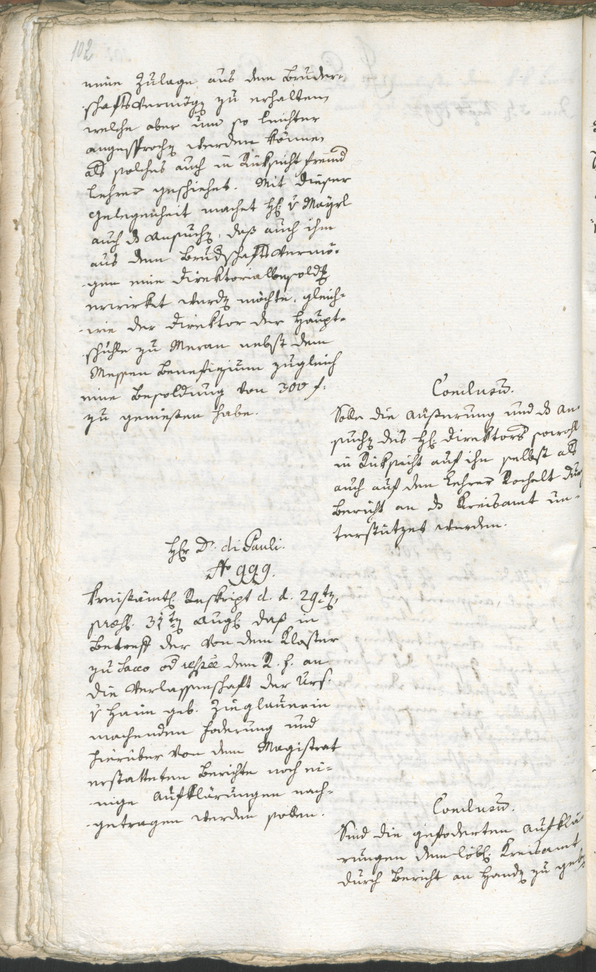 102
eine Zulage aus dem Bruder-
schaftsvermögen zu erhalten
welche aber um so leichter
angesprochen werden können
als solches auch in Rüksicht
Lehrer geschiehet. Mit dieser
Gelegenheit machet H. v Mayrl
auch das Ansuchen, daß auch ihm
aus dem Brudschaftsvermö-
gen eine Direktorialbesoldung
erwirket werden möchte, gleich-
wie der Direktor der Haupt-
schule zu Meran nebst dem
Messen Benefizium zugleich
eine Besoldung von 300 f.
zu geniessen habe.
Conclusum.
Solle die Äußerung und das An-
suchen des H. Direktors sowohl
in Rüksicht auf ihn selbst als
auch auf den Lehrer Rochelt durch
Bericht an das Kreisamt un-
terstützet werden.
H. Dr. di Pauli.
N 999.
Kreisämtl. Reskript d. d. 29ten
präs. 31ten Augl. daß in
Betreff der von dem Kloster
zu Sacco od respve dem R. f. an
die Verlassenschaft der Urs.
v Haim geb. Zieglauerin
machenden Foderung und
hierüber von dem Magistrat
erstatteten Berichte noch ei-
nige Aufklärungen nach-
getragen werden sollen.
Conclusum.
Sind die gefoderten Aufklä-
rungen dem löbl. Kreisamt
durch Bericht an Handen zu geben